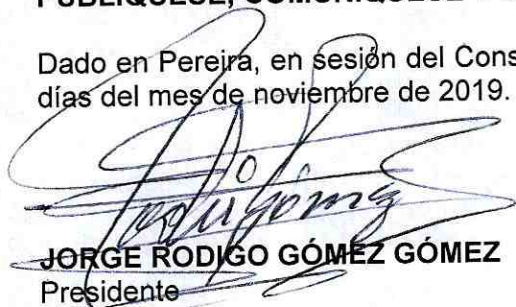 PUBLÍQUESE, COMUNÍQUESE
Dado en Pereira, en sesión del Cons
días del mes de noviembre de 2019.
JORGE RODIGO GÓMEZ GÓMEZ
Presidente